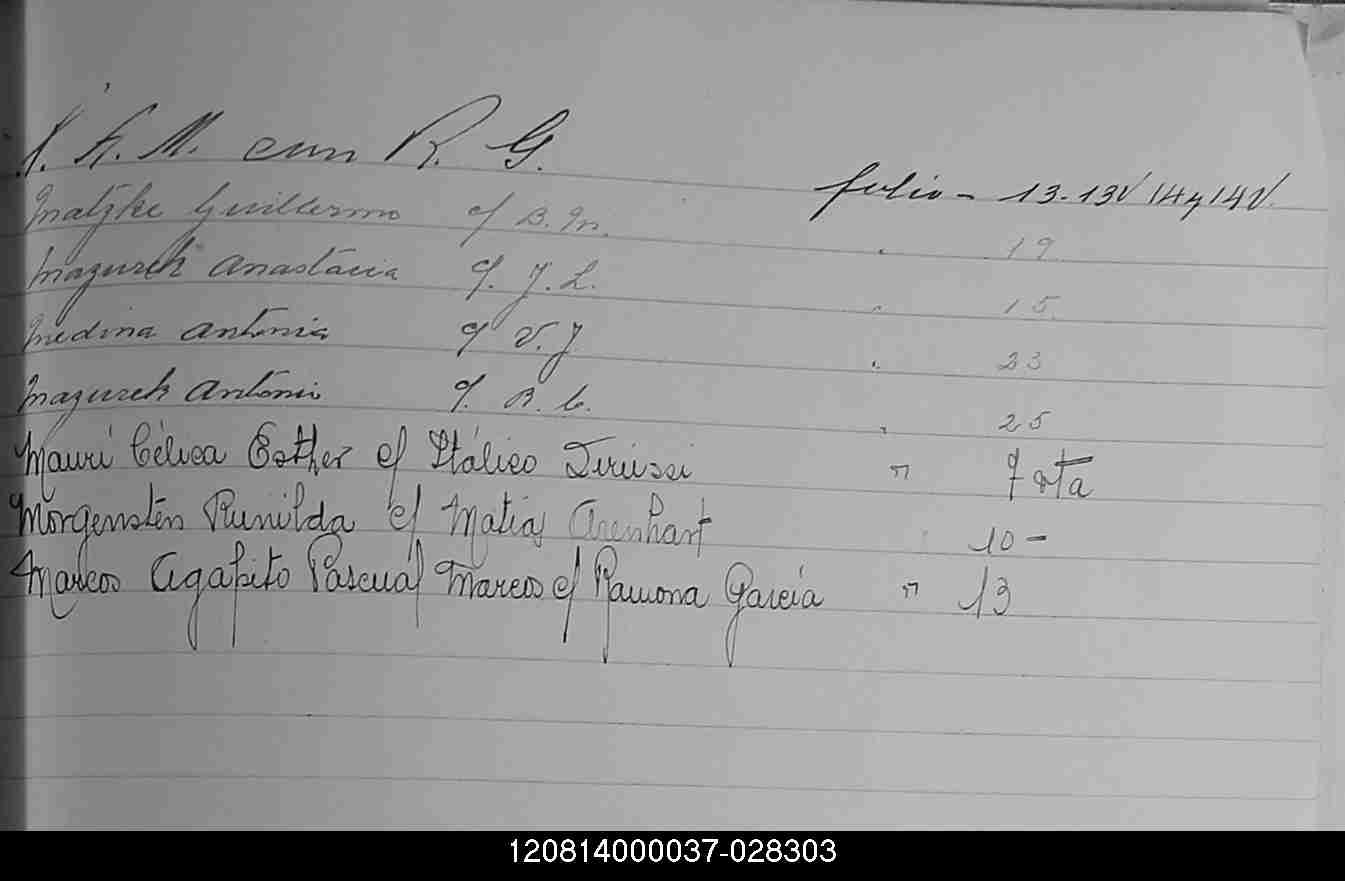 A. M. con R. G. folio - 13-13V 14y14V.
Matzke Guillermo c/ B. M. " 19
Mazurek Anastacia c/. J. L. " 15.
Medina Antonia c/ V. J " 23
Mazurek Antonio c/. B. C. " 25
Mauri Célica Esther c/ Itálico " 7 vta
Morgenstén Runilda c/ Matias Arenhart 10-
Marcos Agapito Pascual Marcos c/ Ramona García " 13
120814000037-028303